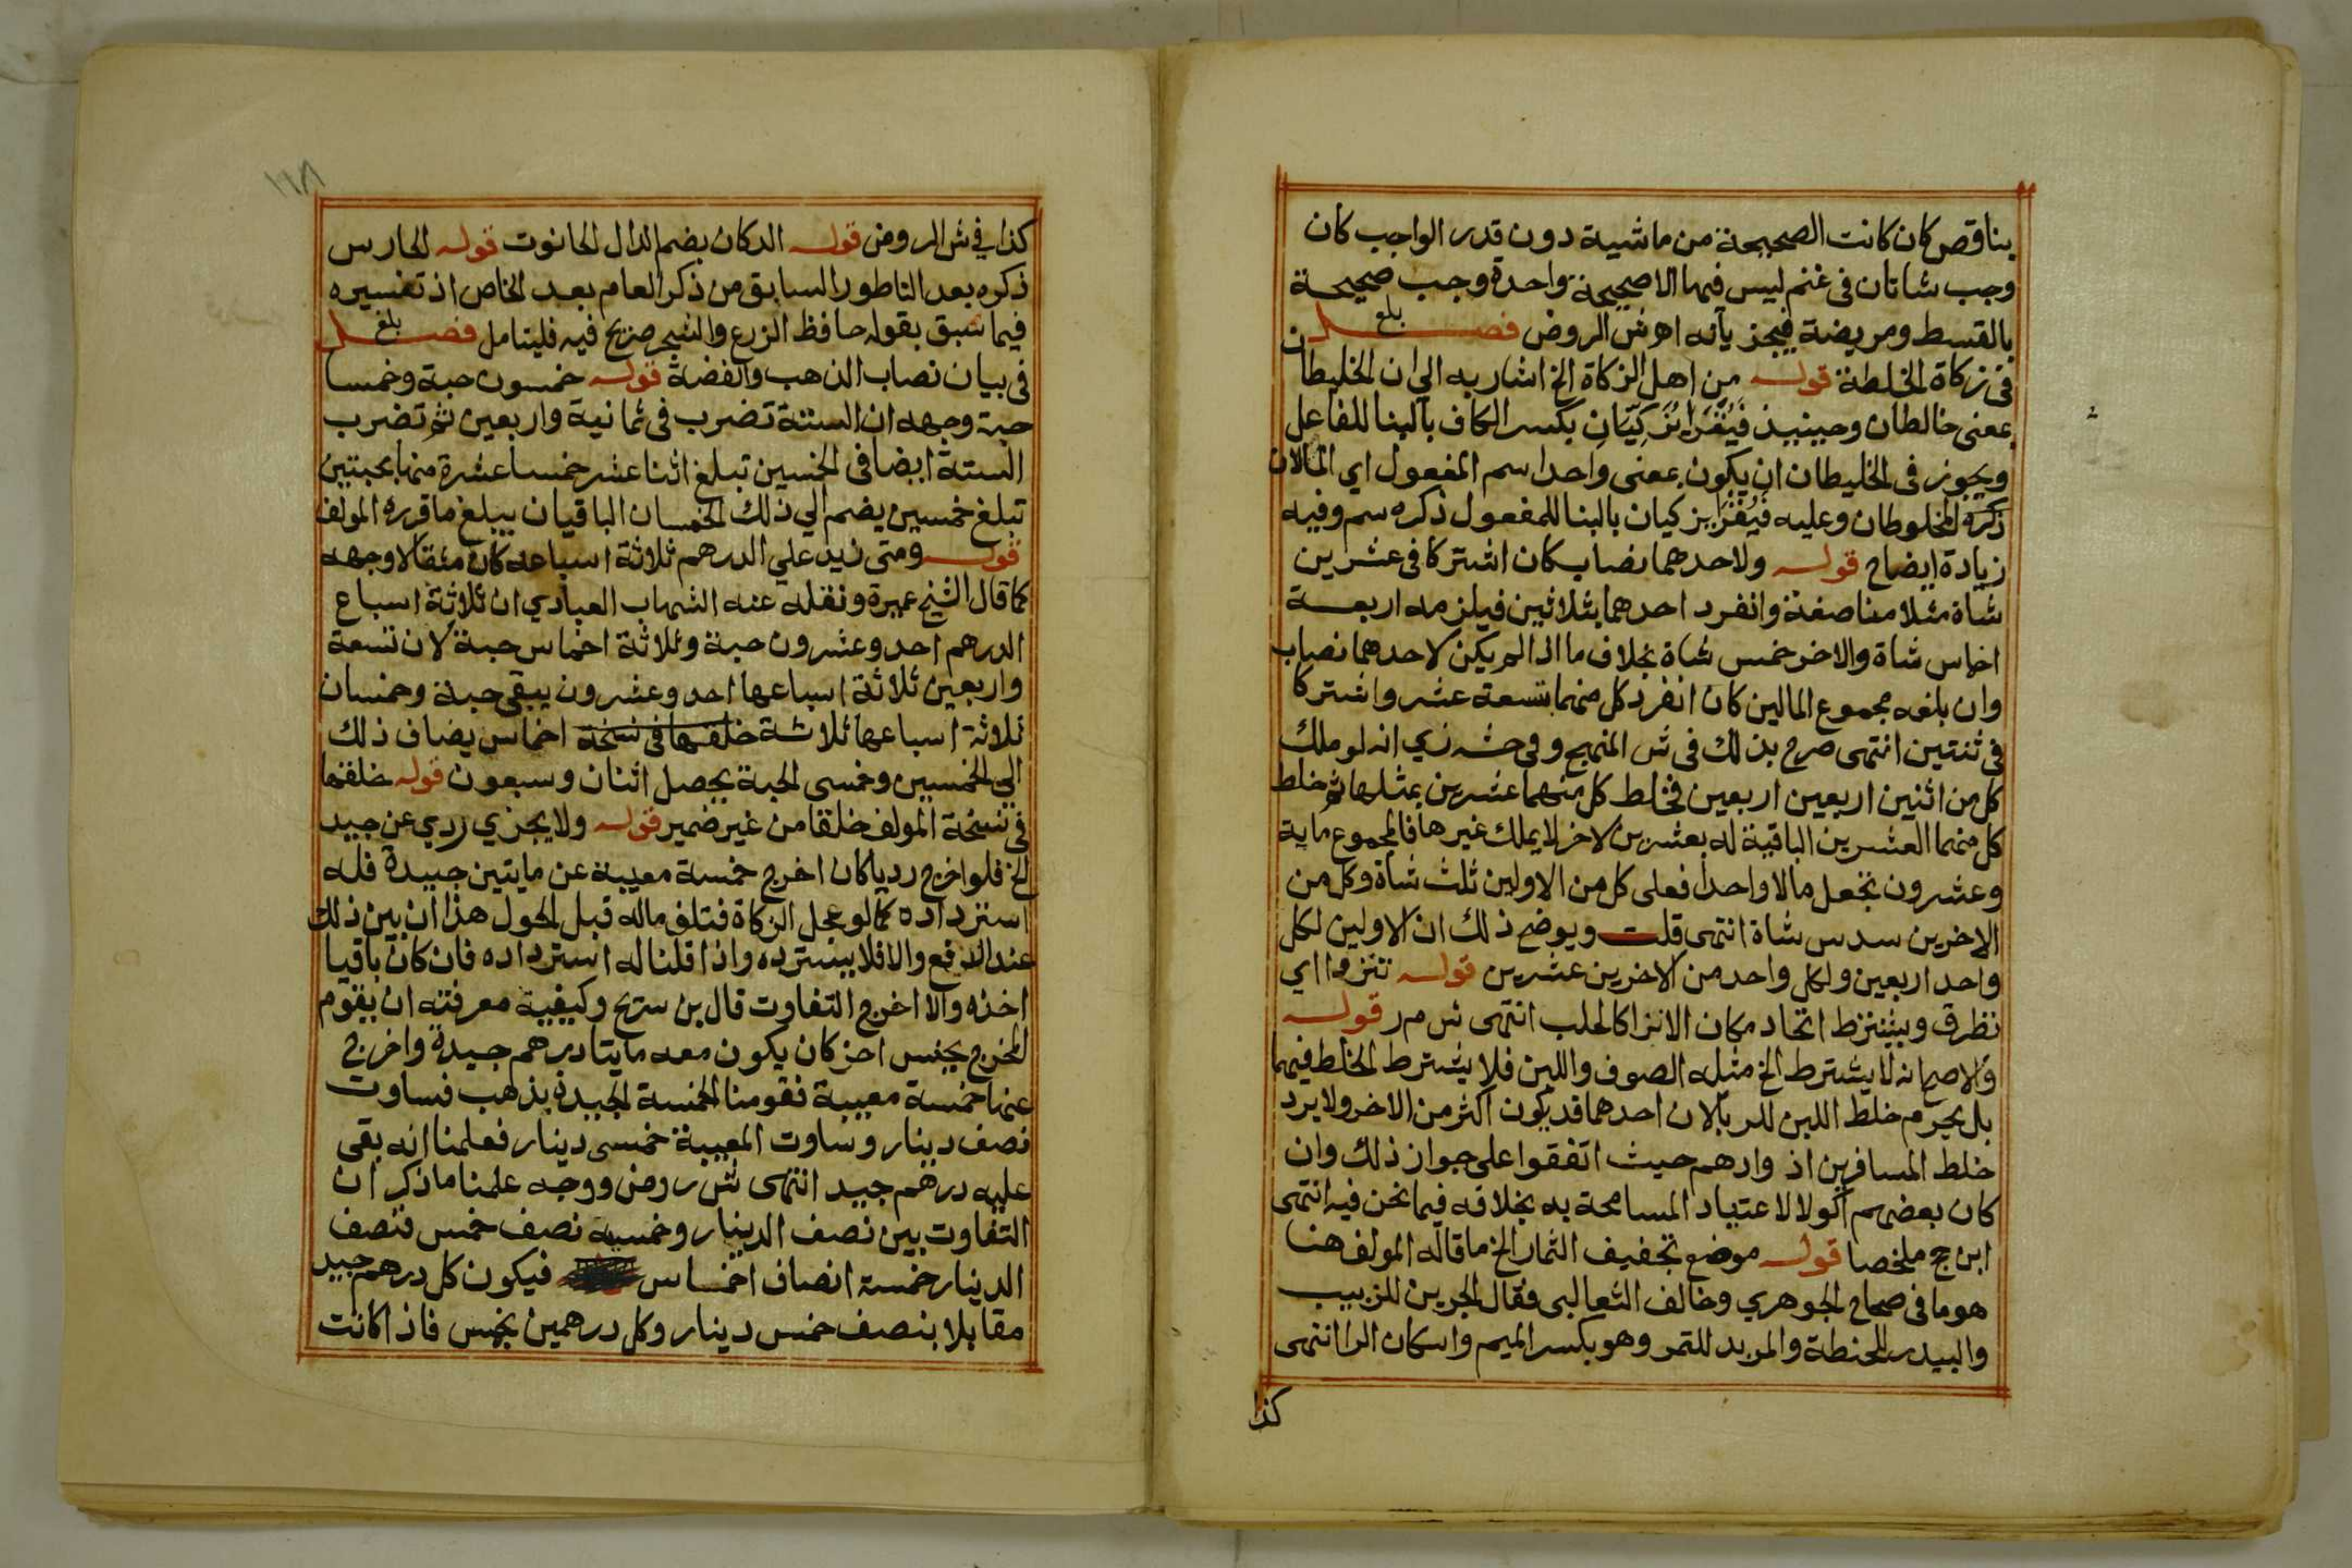 بناقص كان كانت الصحيحة من ماشية دون قدر الواجب كان
وجب شاتان فى غنم ليس فيها الا صحيحة واحدة وجب صحيحة
بالقسط ومريضة فيجزيانه اه ش الروض فصل بلغ
فى زكاة الخلطة قوله من اهل الزكاة الخ اشار به الي ان الخليطان
بمعنى خالطان وحينيذ فيقرا يزكيان بكسر الكاف بالبنا للفاعل
ويجوز فى الخليطان ان يكون بمعنى واحدا سم المفعول اي المالان
المخلوطان وعليه فيقرا يزكيان بالبنا للمفعول ذكره سم وفيه
زيادة ايضاح قوله ولاحدهما نصاب كان اشتركا فى عشرين
شاة مثلا مناصفة وانفرد احدهما بثلاثين فيلزمه اربعة
اخماس شاة والاخر خمس شاة بخلاف ما اذا لم يكن لاحدهما نصاب
وان بلغه مجموع المالين كان انفرد كل منهما بتسعة عشر واشتركا
فى ثنتين انتهى صرح بذلك فى ش المنهج وفى حشه زي انه لو ملك
كل من اثنين اربعين اربعين فخلط كل منهما عشرين بمثلها ثم خلط
كل منهما العشرين الباقية له بعشرين لاخر لا يملك غيرها فالمجموع ماية
وعشرون نجعل مالا واحدا فعلى كل من الاولين ثلث شاة وكل من
الاخرين سدس شاة انتهى قلت ويوضح ذلك ان الاولين لكل
واحد اربعين ولكل واحد من الاخرين عشرين قوله تنزوا اي
نظرق ويشترط اتحاد مكان الانزا كالحلب انتهى ش م ر قوله
والاصح انه لا يشترط الخ مثله الصوف واللبن فلا يشترط الخلط فيهما
بل يحرم خلط اللبن للربا لان احدهما قد يكون اكثر من الاخر ولا يرد
خلط المسافرين اذ وادهم حيث اتفقوا على جواز ذلك وان
كان بعضهم اكولا لاعتياد المسامحة به بخلافه فيما نحن فيه انتهى
ابن ج ملخصا قوله موضع تجفيف الثمار الخ ما قاله المولف هنا
هو ما فى صحاح الجوهري وخالف الثعالبى فقال الجرين للزبيب
والبيدر للحنطة والمربد للتمر وهو بكسر الميم واسكان الرا انتهى
كذا
١١٨
كذا في ش الروض قوله الدكان بضم الدال الحانوت قوله الحارس
ذكره بعد الناطور السابق من ذكر العام بعد الخاص اذ تفسيره
فيما سبق بقوله حافظ الزرع والشجر صريح فيه فليتامل فصل بلغ
فى بيان نصاب الذهب والفضة قوله خمسون حبة وخمسا
حبة وجهه ان الستة تضرب فى ثمانية واربعين ثم تضرب
الستة ايضا فى الخمسين تبلغ اثنا عشر خمسا عشرة منها بحبتين
تبلغ خمسين يضم الي ذلك الخمسان الباقيان يبلغ ما قرره المولف
قوله ومتى زيد علي الدرهم ثلاثة اسباعه كان مثقالا وجهه
كما قال الشيخ عميرة ونقله عنه الشهاب العبادي ان ثلاثة اسباع
الدرهم احد وعشرون حبة وثلاثة اخماس حبة لان تسعة
واربعين ثلاثة اسباعها احد وعشرون يبقى حبة وخمسان
ثلاثة اسباعها ثلاثة خلقها فى نسخة اخماس يضاف ذلك
الي الخمسين وخمسى الحبة يحصل اثنان وسبعون قوله خلقها
فى نسخة المولف خلقا من غير ضمير قوله ولا يجزي ردي عن جيد
الخ فلو اخرج رديا كان اخرج خمسة معيبة عن مايتين جيدة فله
استرداده كما لو عجل الزكاة فتلف ماله قبل الحول هذا ان بين ذلك
عند الدفع والا فلا يسترده واذا قلنا له استرداده فان كان باقيا
اخذه والا اخرج التفاوت قال بن سريج وكيفية معرفته ان يقوم
المخرج بجنس اخر كان يكون معه مايتا درهم جيدة واخرج
عنها خمسة معيبة فقومنا الخمسة الجيدة بذهب فساوت
نصف دينار وساوت المعيبة خمسى دينار فعلمنا انه بقى
عليه درهم جيد انتهى ش روض ووجه علمنا ما ذكر ان
التفاوت بين نصف الدينار وخمسيه نصف خمس فنصف
الدينار خمسة انصاف اخماس فيكون كل درهم جيد
مقابلا بنصف خمس دينار وكل درهمين بخمس فاذا كانت